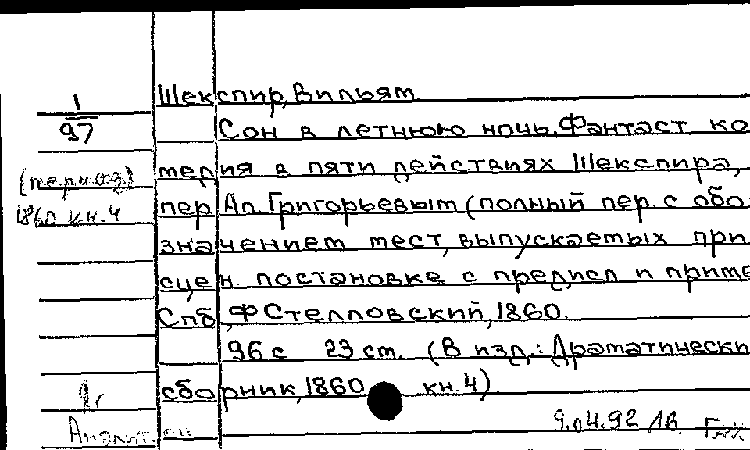 Шекспир, Вильям
1
97
Сон в летнюю ночь. Фантаст ко
медия в пяти действиях Шекспира,
(период)
1860 кн. 4
пер Ап. Григорьевым (полный пер. с обо-
значением мест, выпускаемых при
сцен. постановке с предисл и приме
Спб, Ф Стелловский, 1860.
96 с 23 см. (В изд.: Драматически
сборник, 1860 кн. 4)
9.04.92 ЛВ